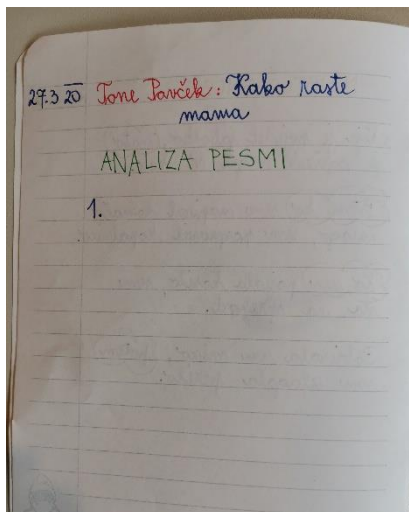 27.3 20 Tone Pavček: Kako raste
mama
ANALIZA PESMI
1.